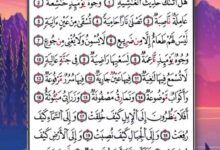 هَلْ أَتَىٰكَ حَدِيثُ ٱلْغَٰشِيَةِ ١ وُجُوهٌ يَوْمَئِذٍ خَٰشِعَةٌ ٢
عَامِلَةٌ نَّاصِبَةٌ ٣ تَصْلَىٰ نَارًا حَامِيَةً ٤ تُسْقَىٰ مِنْ عَيْنٍ ءَانِيَةٍ ٥
لَّيْسَ لَهُمْ طَعَامٌ إِلَّا مِن ضَرِيعٍ ٦ لَّا يُسْمِنُ وَلَا يُغْنِى مِن جُوعٍ ٧
وُجُوهٌ يَوْمَئِذٍ نَّاعِمَةٌ ٨ لِّسَعْيِهَا رَاضِيَةٌ ٩ فِى جَنَّةٍ عَالِيَةٍ ١٠
لَّا تَسْمَعُ فِيهَا لَٰغِيَةً ١١ فِيهَا عَيْنٌ جَارِيَةٌ ١٢ فِيهَا سُرُرٌ مَّرْفُوعَةٌ ١٣
وَأَكْوَابٌ مَّوْضُوعَةٌ ١٤ وَنَمَارِقُ مَصْفُوفَةٌ ١٥ وَزَرَابِىُّ مَبْثُوثَةٌ ١٦
أَفَلَا يَنظُرُونَ إِلَى ٱلْإِبِلِ كَيْفَ خُلِقَتْ ١٧ وَإِلَى ٱلسَّمَآءِ كَيْفَ
رُفِعَتْ ١٨ وَإِلَى ٱلْجِبَالِ كَيْفَ نُصِبَتْ ١٩ وَإِلَى ٱلْأَرْضِ كَيْفَ